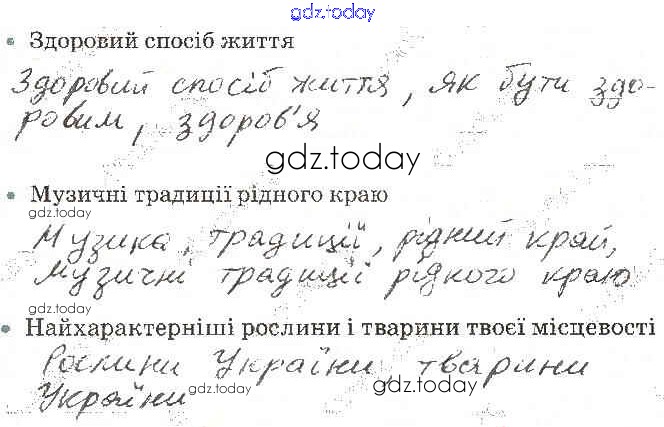 gdz.today
• Здоровий спосіб життя
Здоровий спосіб життя, як бути здо-
ровим, здоров'я
gdz.today
• Музичні традиції рідного краю
gdz.today
Музика, традиції, рідний край,
музичні традиції рідного краю
gdz.today
• Найхарактерніші рослини і тварини твоєї місцевості
Рослини України, тварини
України
gdz.today
gdz.today